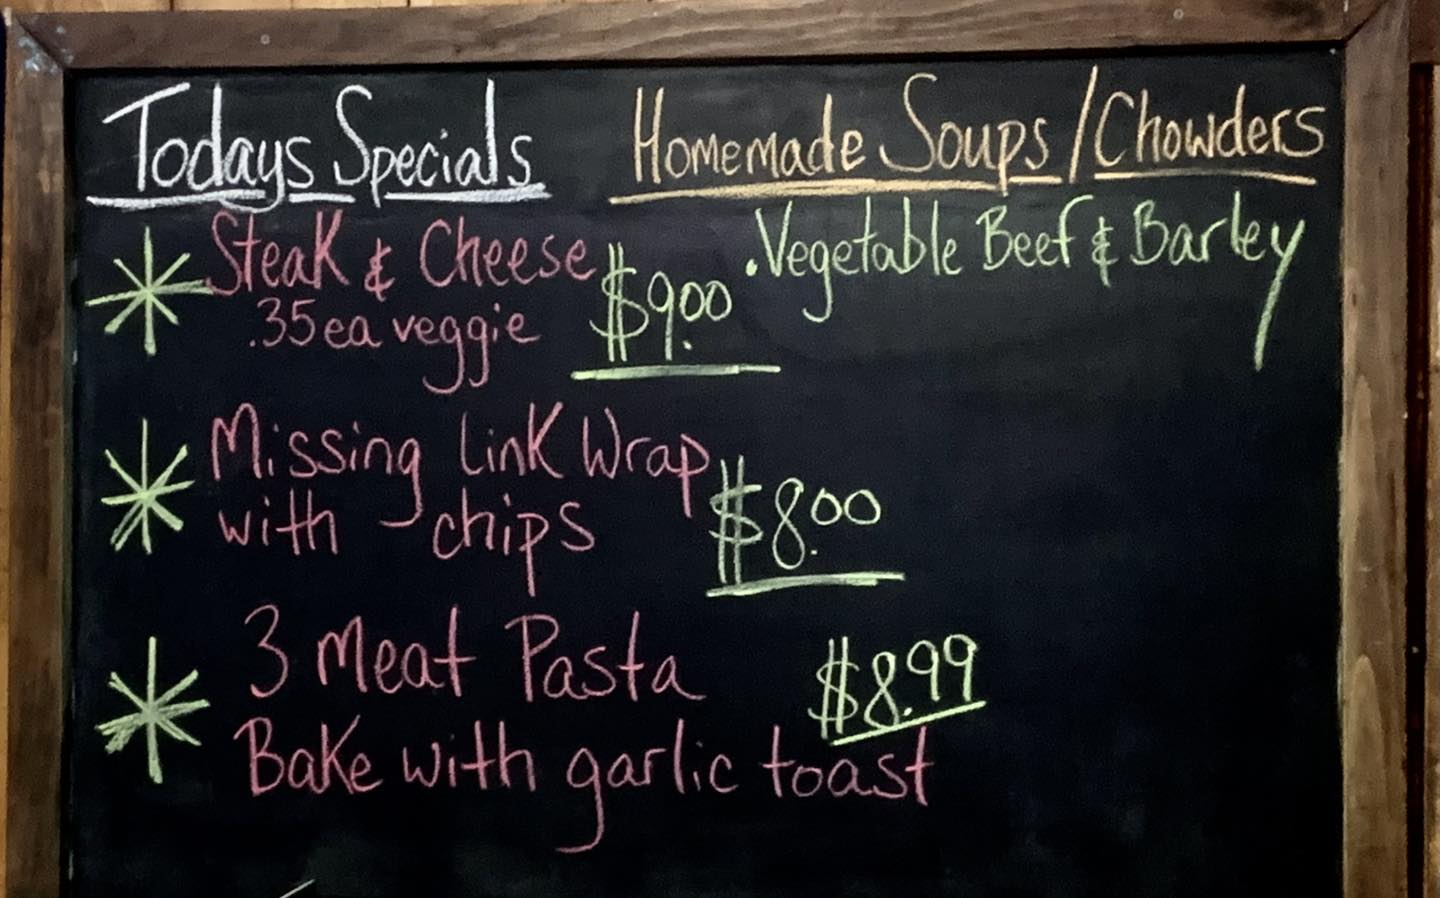 Todays Specials
Steak & Cheese $9.00
.35ea veggie
Missing Link Wrap
with chips $8.00
3 Meat Pasta $8.99
Bake with garlic toast
Homemade Soups/Chowders
.Vegetable Beef & Barley